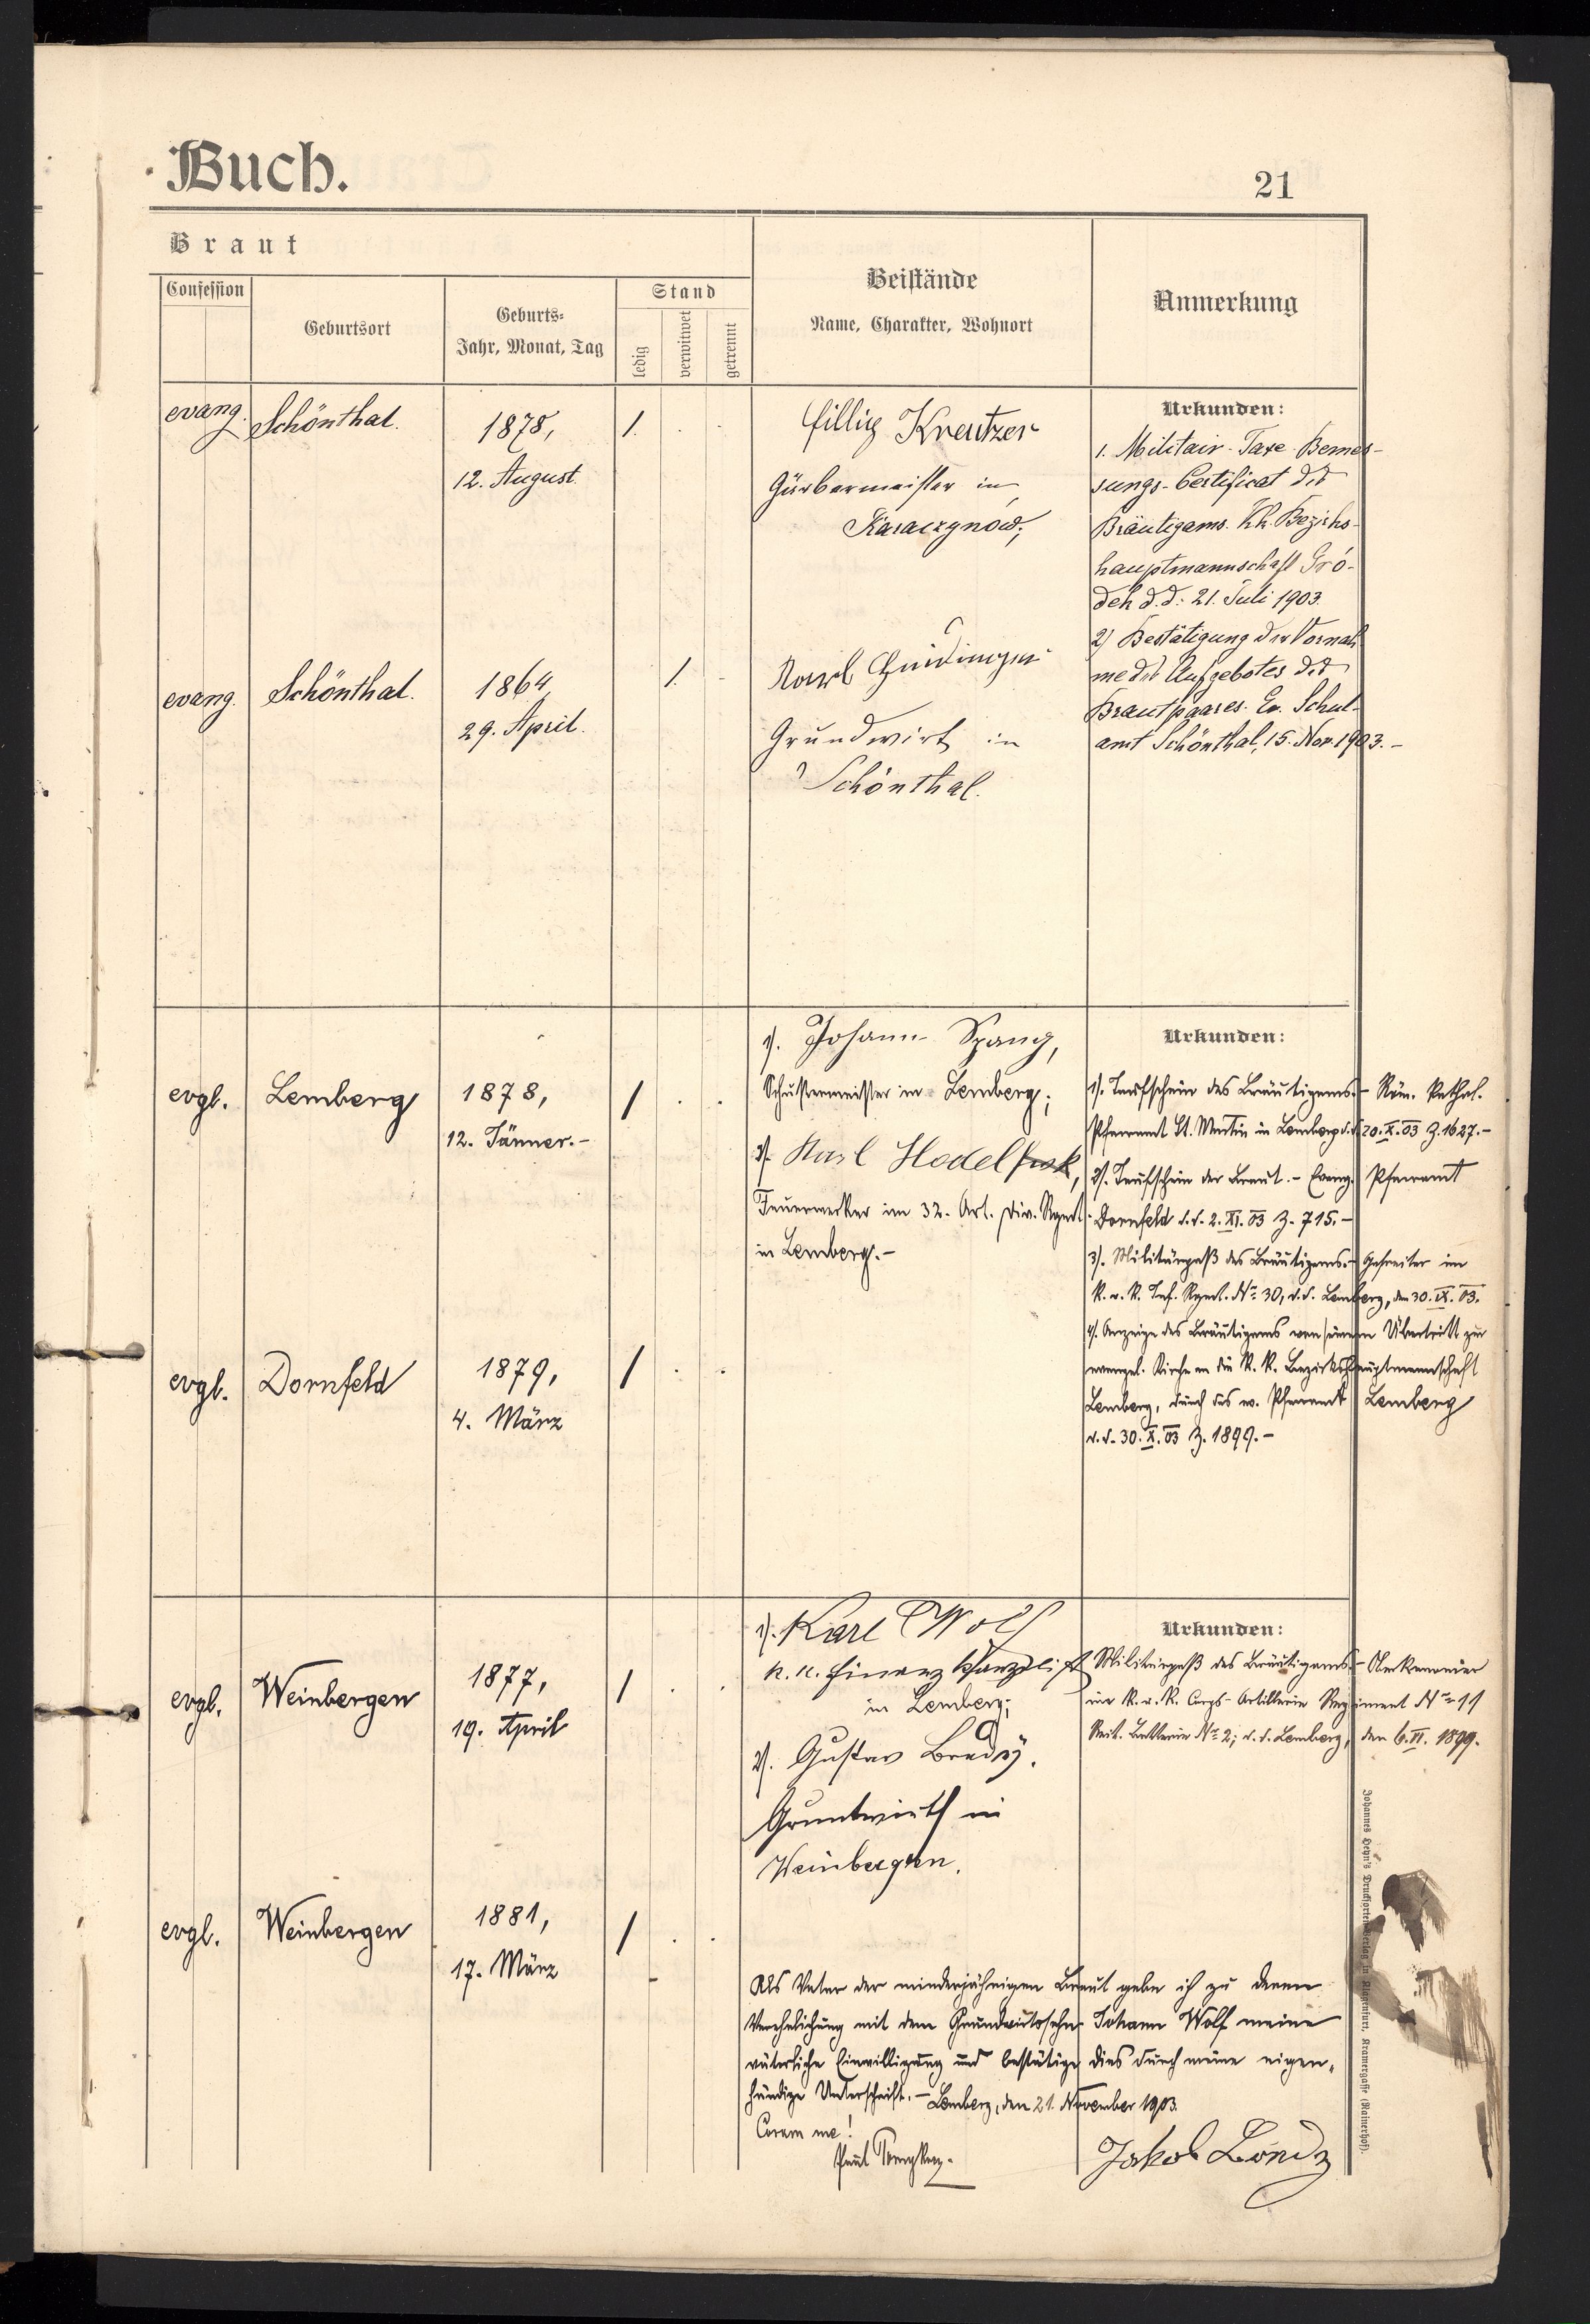 Buch.
21
Braut
Confession
Geburtsort
Geburts-
Jahr, Monat, Tag
Stand
ledig
verwitwet
getrennt
Beistände
Name, Charakter, Wohnort
Anmerkung
evang.
Schönthal.
1878,
12. August.
1.
Kreutzer
Gärbermeister in
Karaczynów;
Urkunden:
1. Militair-Taxe-Bemes-
sungs-Certificat des
Bräutigams. kk. Bezirks-
hauptmannschaft Gró-
dek d.d. 21. Juli 1903.
2) Bestätigung der Vornah-
me des Aufgebotes des
Brautpaares. Ev. Schul-
amt Schönthal, 15. Nov. 1903.-
evang.
Schönthal.
1864,
29. April.
1.
Karl
Grundwirt in
Schönthal.
evgl.
Lemberg
1878,
12. Jänner.-
/
1). Johann Spang,
Schustermeister in Lemberg;
2). Karl Hodel
Feuerwerker im 32. Art. Div. Regmt.
in Lemberg.-
Urkunden:
1). Taufschein des Bräutigams.- Röm. kathol.
Pfarramt St. Martin in Lemberg d.d. 20.X.03 Z.1627.-
2). Taufschein der Braut.- Evang. Pfarramt
Dornfeld d.d. 2.XI.03 Z.715.-
3). Militärpaß des Bräutigams.- Gefreiter im
k.u.k. Inf. Rgmt. No 30, d.d. Lemberg, den 30.IX.03.
4). Anzeige des Bräutigams von seinem Übertritt zur
evangel. Kirche an die k.k. Bezirkshauptmannschaft
Lemberg, durch das ev. Pfarramt Lemberg
d.d. 30.X.03 Z.1899.-
evgl.
Dornfeld
1879,
4. März
/
evgl.
Weinbergen
1877,
19. April
/
1). Karl Wolf
k.k. Finanz Kanzlist
in Lemberg;
2). Gustav Bredÿ.
Gruntwirth in
Weinbergen.
Urkunden:
Militärpaß des Bräutigams.-
im k.u.k. Corps-Artillerie Regiment No 11
Reit. Batterie No 2; d.d. Lemberg, den 6.VI.1899.
evgl.
Weinbergen
1881,
17. März
/
Als Vater der minderjährigen Braut gebe ich zu deren
Verehelichung mit dem Grundwirtssohne Johann Wolf meine
väterliche Einwilligung und bestätige dies durch meine eigen-
händige Unterschrift.- Lemberg, den 21. November 1903.
Coram me!
Jakob
Johannes Heyn's Drucksortenverlag in Klagenfurt, Kramergasse (Rainerhof).